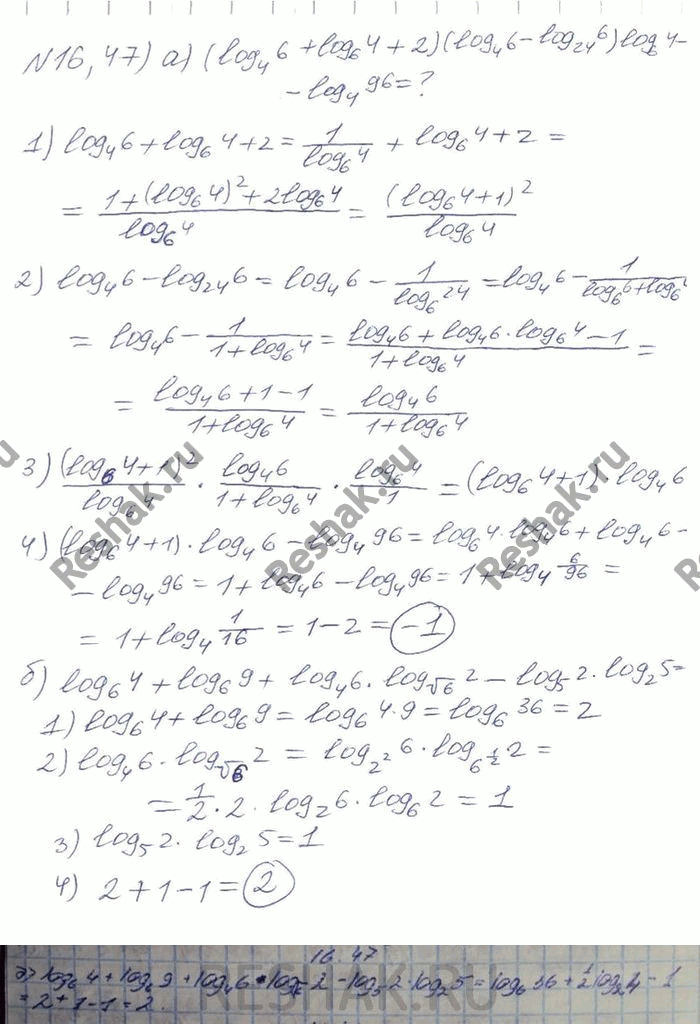 N16,47) а) (log₄6 + log₆4 + 2)(log₄6 - log₂₄6)log₆4 -
- log₄96 = ?
1) log₄6 + log₆4 + 2 = 1/log₆4 + log₆4 + 2 =
= (1 + (log₆4)² + 2log₆4)/log₆4 = (log₆4 + 1)²/log₆4
2) log₄6 - log₂₄6 = log₄6 - 1/log₆24 = log₄6 - 1/(log₆6 + log₆4
= log₄6 - 1/(1 + log₆4) = (log₄6 + log₄6 · log₆4 - 1)/(1 + log₆4) =
= (log₄6 + 1 - 1)/(1 + log₆4) = log₄6/(1 + log₆4)
3) (log₆4 + 1)²/log₆4 · log₄6/(1 + log₆4) · log₆4/1 = (log₆4 + 1) · log₄6
4) (log₆4 + 1) · log₄6 - log₄96 = log₆4 · log₄6 + log₄6 -
- log₄96 = 1 + log₄6 - log₄96 = 1 + log₄ 6/96 =
= 1 + log₄ 1/16 = 1 - 2 = -1
б) log₆4 + log₆9 + log₄6 · log_√6 2 - log₅2 · log₂5 =
1) log₆4 + log₆9 = log₆4·9 = log₆36 = 2
2) log₄6 · log_√6 2 = log_2² 6 · log_6^½ 2 =
= 1/2 · 2 · log₂6 · log₆2 = 1
3) log₅2 · log₂5 = 1
4) 2 + 1 - 1 = 2
16.47
log₆4 + log₆9 + log₄6 · 2 - log₅2 · log₂5 = log₆36 + ½log₂4 - 1
= 2 + 1 - 1 = 2
Reshak.ru
Reshak.ru
Reshak.ru
RESHAK.RU